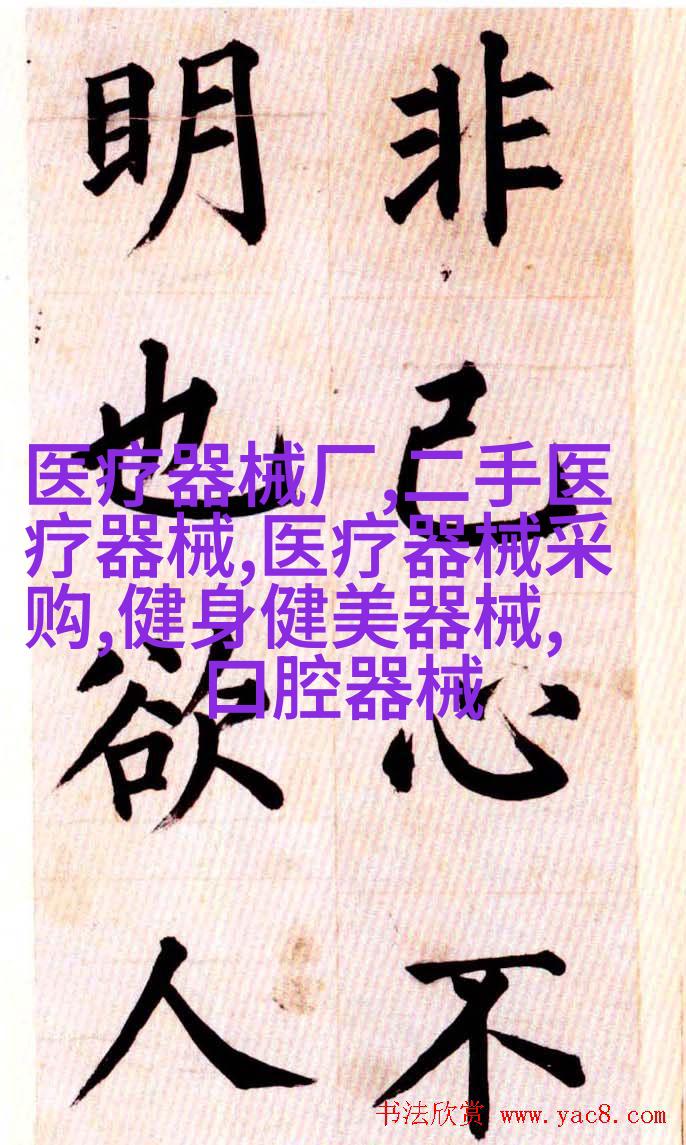 非己心不
明也欲人
医疗器械厂,二手医
疗器械,医疗器械采
购,健身健美器械,
口腔器械
书法欣赏 www.yac8.com